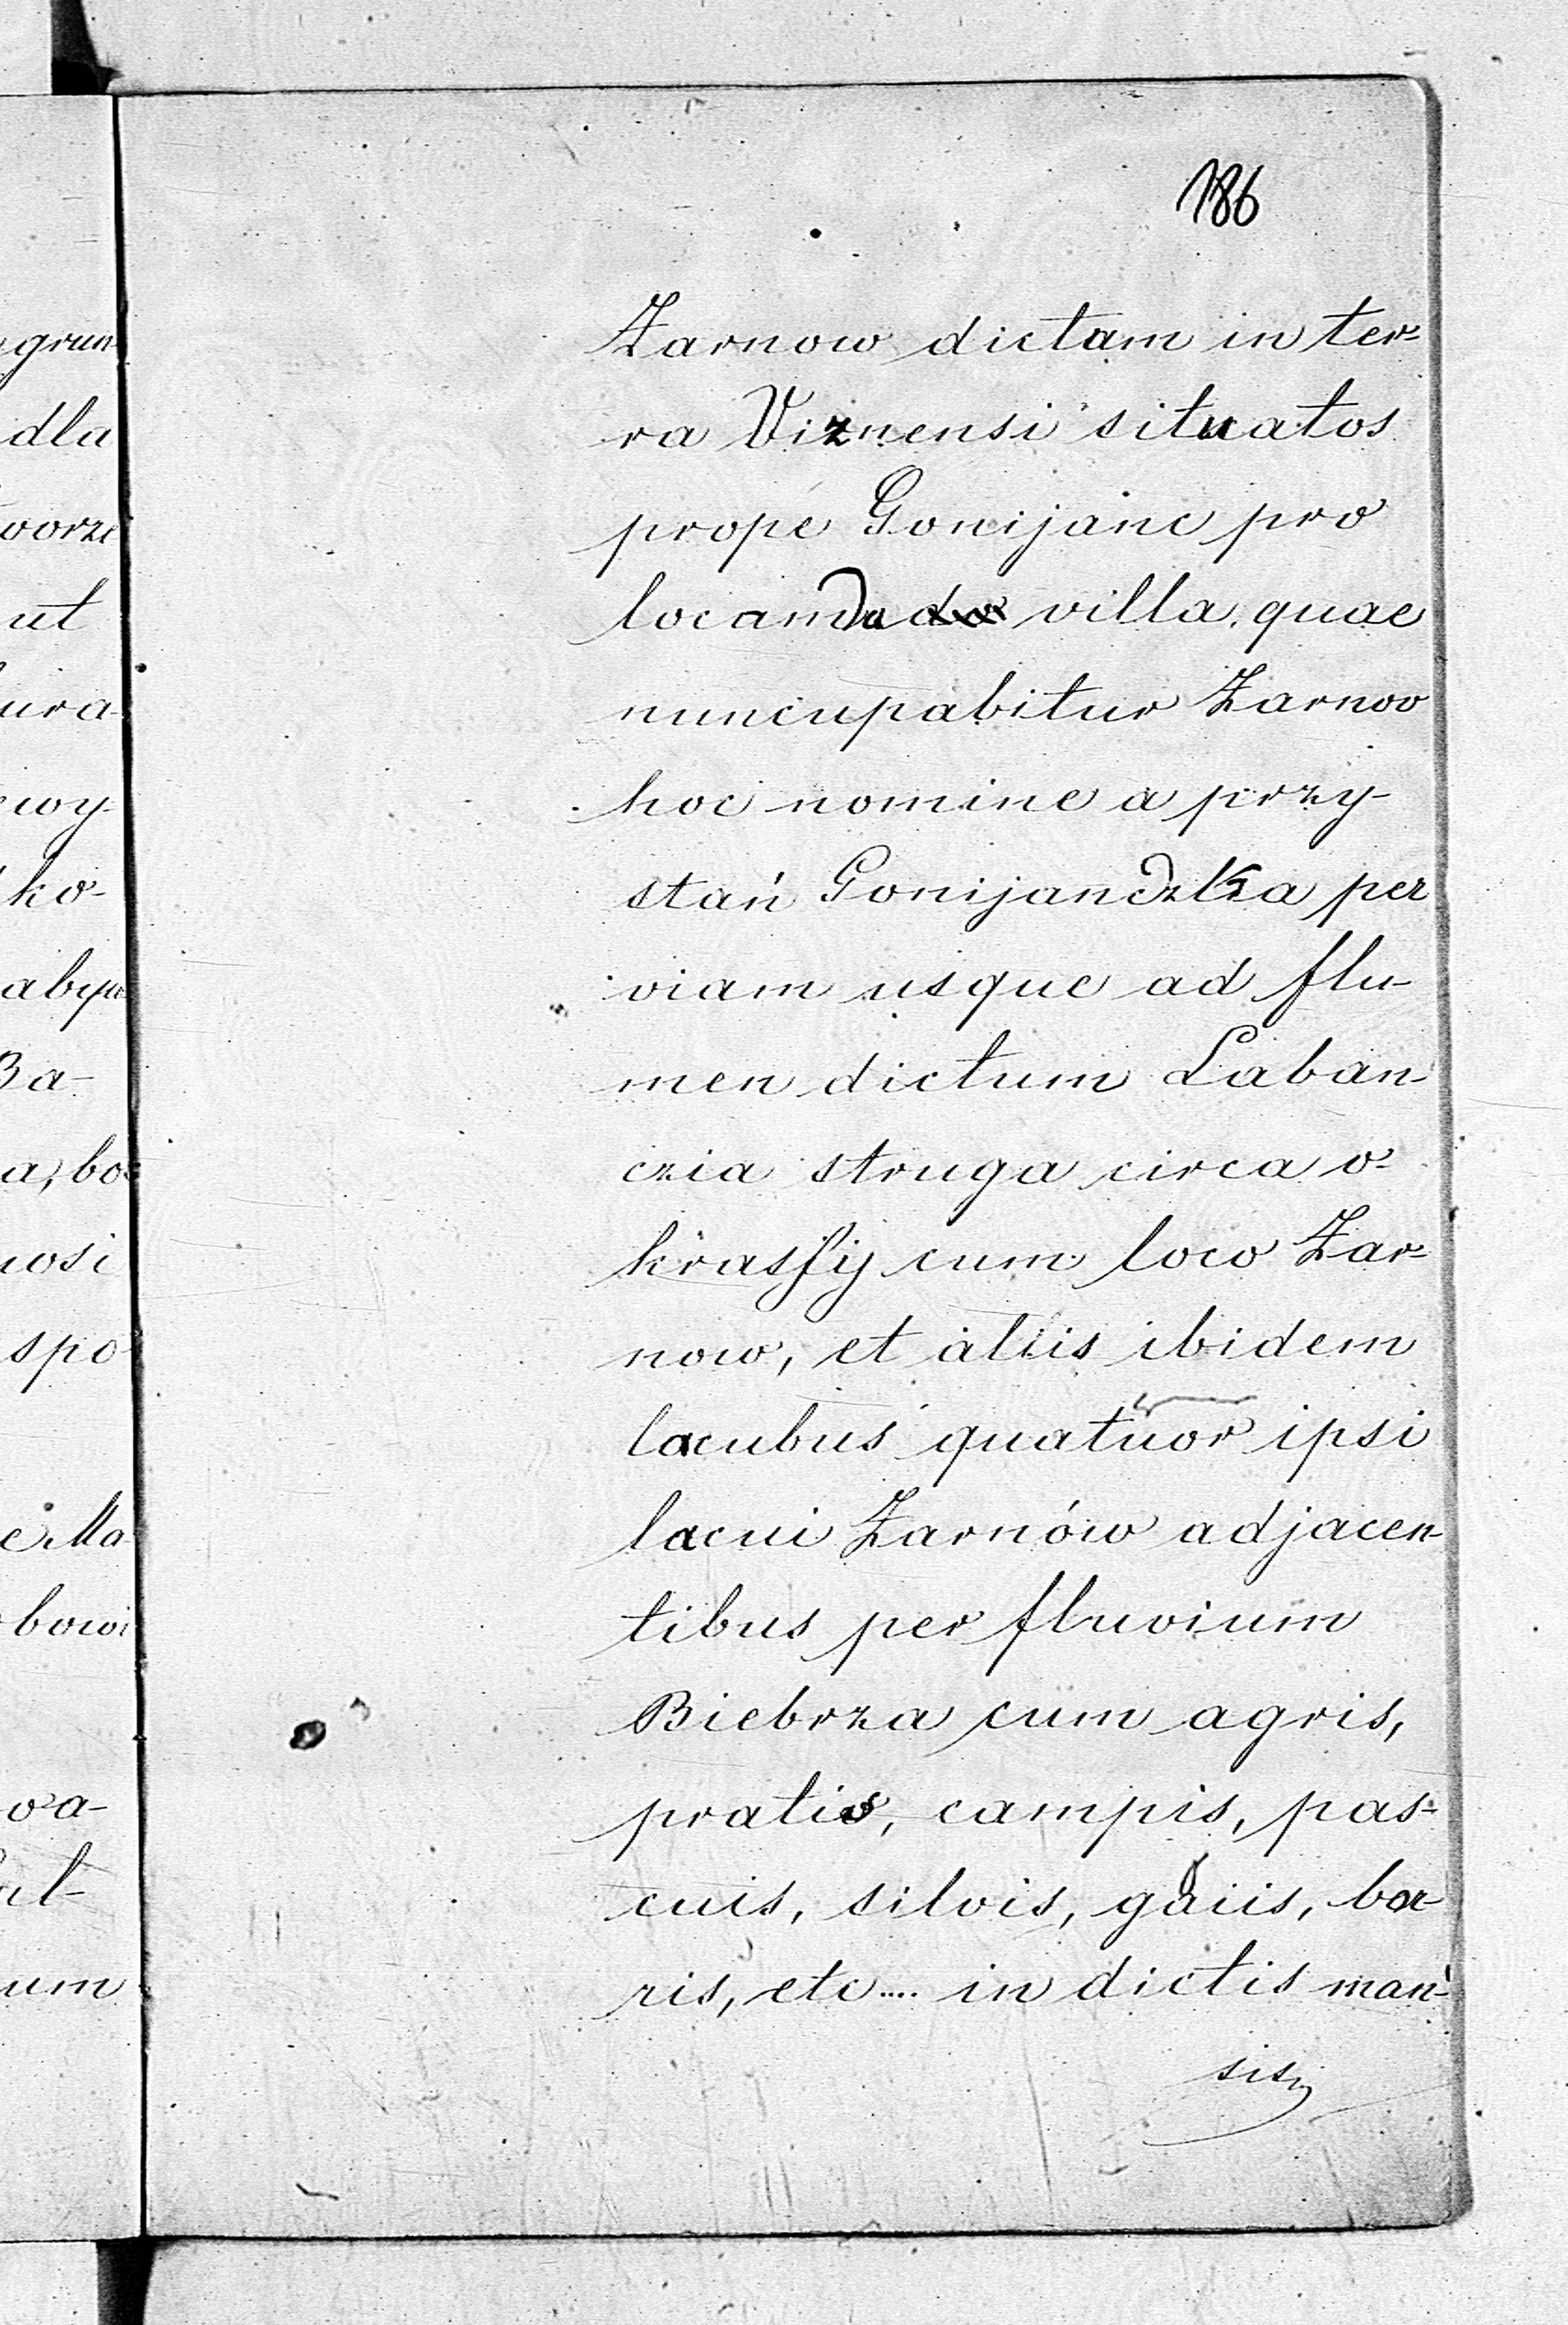 186
Zarnow dictam in ter-
ra Viznensi situatos
prope Gonijanc pro
locanda villa, quae
nuncupabitur Zarnow
hoc nomine a przy-
stań Gonijandzka per
viam usque ad flu-
men dictum Laban-
czia struga circa o-
krasfij cum loco Zar-
now, et aliis ibidem
lacubus quatuor ipsi
lacui Zarnów adjacen-
tibus per fluvium
Biebrza cum agris,
pratis, campis, pas-
cuis, silvis, gaiis, bo-
ris, etc.... in dictis man-
sis
grun
dla
worze
ut
ura-
wy-
ko-
Ba-
a, bo
nosi
spo
e Ma
bowi
wa-
um